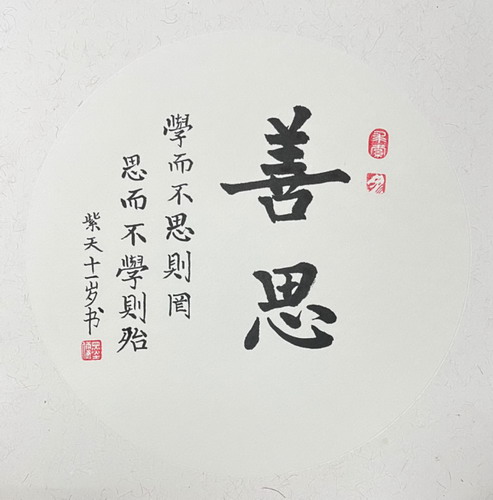 善思
學而不思則罔
思而不學則殆
紫天十一岁书